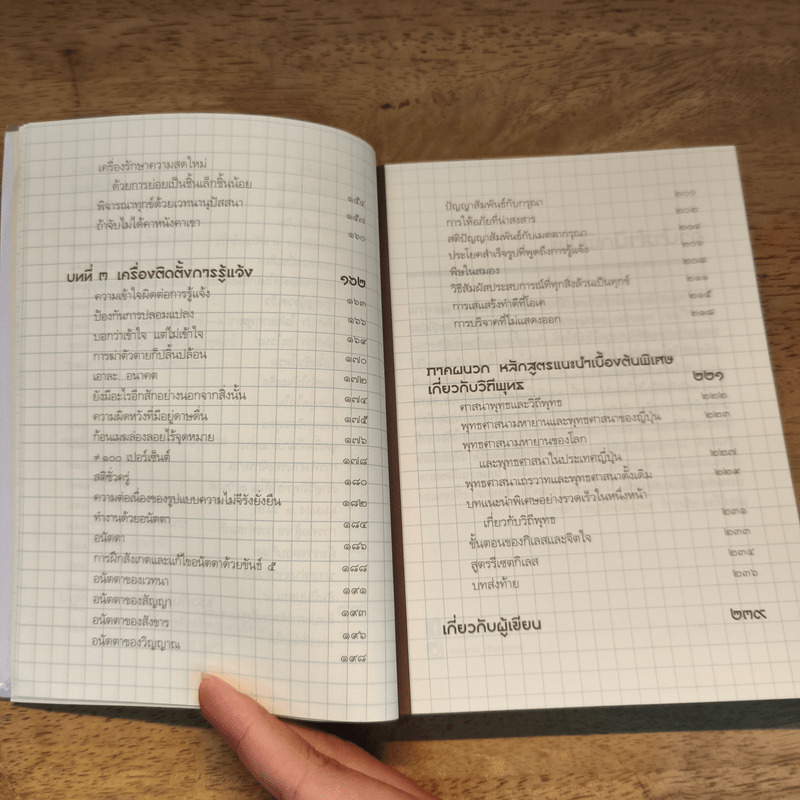 เครื่องรักษาความสดใหม่
ด้วยการย่อยเป็นชิ้นเล็กชิ้นน้อย ๑๕๔
พิจารณาทุกข์ด้วยเวทนานุปัสสนา ๑๕๗
ถ้าจับไม่ได้คาหนังคาเขา ๑๖๐
บทที่ ๓ เครื่องติดตั้งการรู้แจ้ง ๑๖๒
ความเข้าใจผิดต่อการรู้แจ้ง ๑๖๓
ป้องกันการปลอมแปลง ๑๖๖
บอกว่าเข้าใจ แต่ไม่เข้าใจ ๑๖๙
การฆ่าตัวตายก็ปลิ้นปล้อน ๑๗๐
เอาละ...อนาคต ๑๗๒
ยังมีอะไรอีกสักอย่างนอกจากสิ่งนั้น ๑๗๔
ความผิดหวังที่มีอยู่ดาษดื่น ๑๗๕
ก้อนเมฆล่องลอยไร้จุดหมาย ๑๗๖
≠ ๑๐๐ เปอร์เซ็นต์ ๑๗๘
สติชั่วครู่ ๑๘๐
ความต่อเนื่องของรูปแบบความไม่จีรังยั่งยืน ๑๘๒
ทำงานด้วยอนัตตา ๑๘๔
อนัตตา ๑๘๖
การฝึกสังเกตและแก้ไขอนัตตาด้วยขันธ์ ๕ ๑๘๘
อนัตตาของเวทนา ๑๙๑
อนัตตาของสัญญา ๑๙๓
อนัตตาของสังขาร ๑๙๖
อนัตตาของวิญญาณ ๑๙๘
ปัญญาสัมพันธ์กับกรุณา ๒๐๐
การให้อภัยที่น่าสงสาร ๒๐๒
สติปัญญาสัมพันธ์กับเมตตากรุณา ๒๐๔
ประโยคสำเร็จรูปที่พูดถึงการรู้แจ้ง ๒๐๖
พิษในสมอง ๒๐๘
วิธีสัมผัสประสบการณ์ที่ทุกสิ่งล้วนเป็นทุกข์ ๒๑๑
การเสแสร้งทำดีที่โอเค ๒๑๕
การบริจาคที่ไม่แสดงออก ๒๑๘
ภาคผนวก หลักสูตรแนะนำเบื้องต้นพิเศษ
เกี่ยวกับวิถีพุทธ ๒๒๑
ศาสนาพุทธและวิถีพุทธ ๒๒๒
พุทธศาสนามหายานและพุทธศาสนาของญี่ปุ่น ๒๒๓
พุทธศาสนามหายานของโลก
และพุทธศาสนาในประเทศญี่ปุ่น ๒๒๗
พุทธศาสนาเถรวาทและพุทธศาสนาดั้งเดิม ๒๒๙
บทแนะนำพิเศษอย่างรวดเร็วในหนึ่งหน้า
เกี่ยวกับวิถีพุทธ ๒๓๑
ขั้นตอนของกิเลสและจิตใจ ๒๓๓
สูตรรีเซตกิเลส ๒๓๔
บทส่งท้าย ๒๓๖
เกี่ยวกับผู้เขียน ๒๓๙